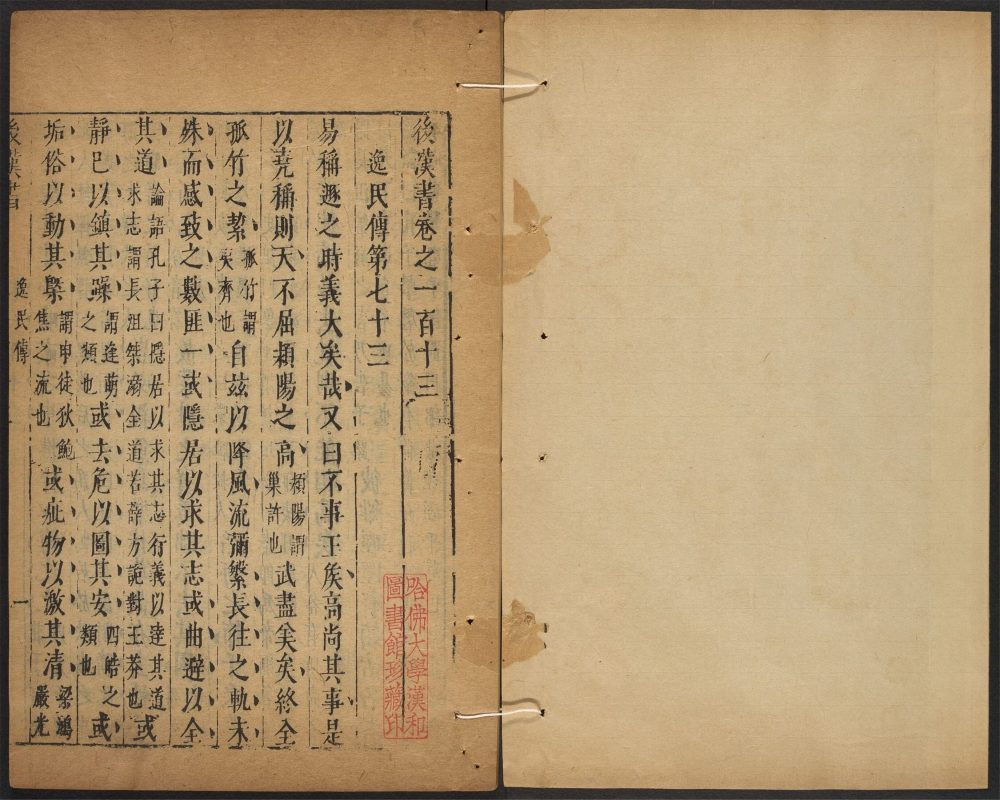 後漢書卷之一百十三
逸民傳第七十三
易稱遯之時義大矣哉又曰不事王矦高尚其事是
以堯稱則天不屈潁陽之高潁陽謂巢許也武盡美矣終全
孤竹之絜孤竹謂夷齊也自茲以降風流彌繁長往之軌未
殊而感致之數匪一或隱居以求其志或曲避以全
其道論語孔子曰隱居以求其志行義以達其道求志謂長沮桀溺全道若薛方詭對王莽也或
靜巳以鎮其躁謂逢萌之類也或去危以圖其安四皓之類也或
垢俗以動其槩謂申徒狄鮑焦之流也或疵物以激其清梁鴻嚴光
後漢書 逸民傳 一
哈佛大學漢和圖書館珍藏印